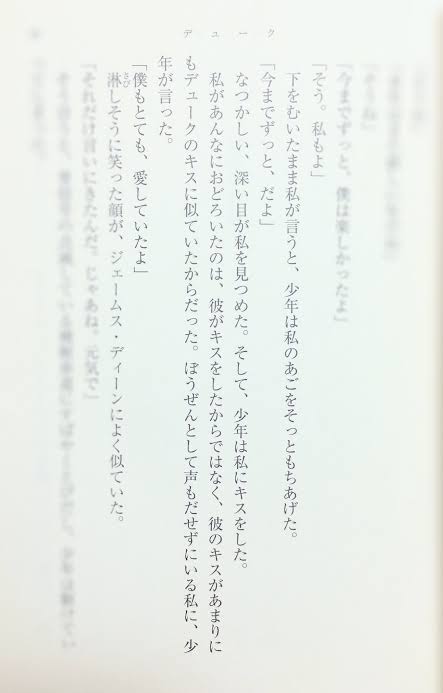 デューク
「そうね」
「今までずっと、僕は楽しかったよ」
「そう。私もよ」
下をむいたまま私が言うと、少年は私のあごをそっともちあげた。
「今までずっと、だよ」
なつかしい、深い目が私を見つめた。そして、少年は私にキスをした。
私があんなにおどろいたのは、彼がキスをしたからではなく、彼のキスがあまりに
もデュークのキスに似ていたからだった。ぼうぜんとして声もだせずにいる私に、少
年が言った。
「僕もとても、愛していたよ」
淋しそうに笑った顔が、ジェームス・ディーンによく似ていた。
「それだけ言いにきたんだ。じゃあね。元気で」